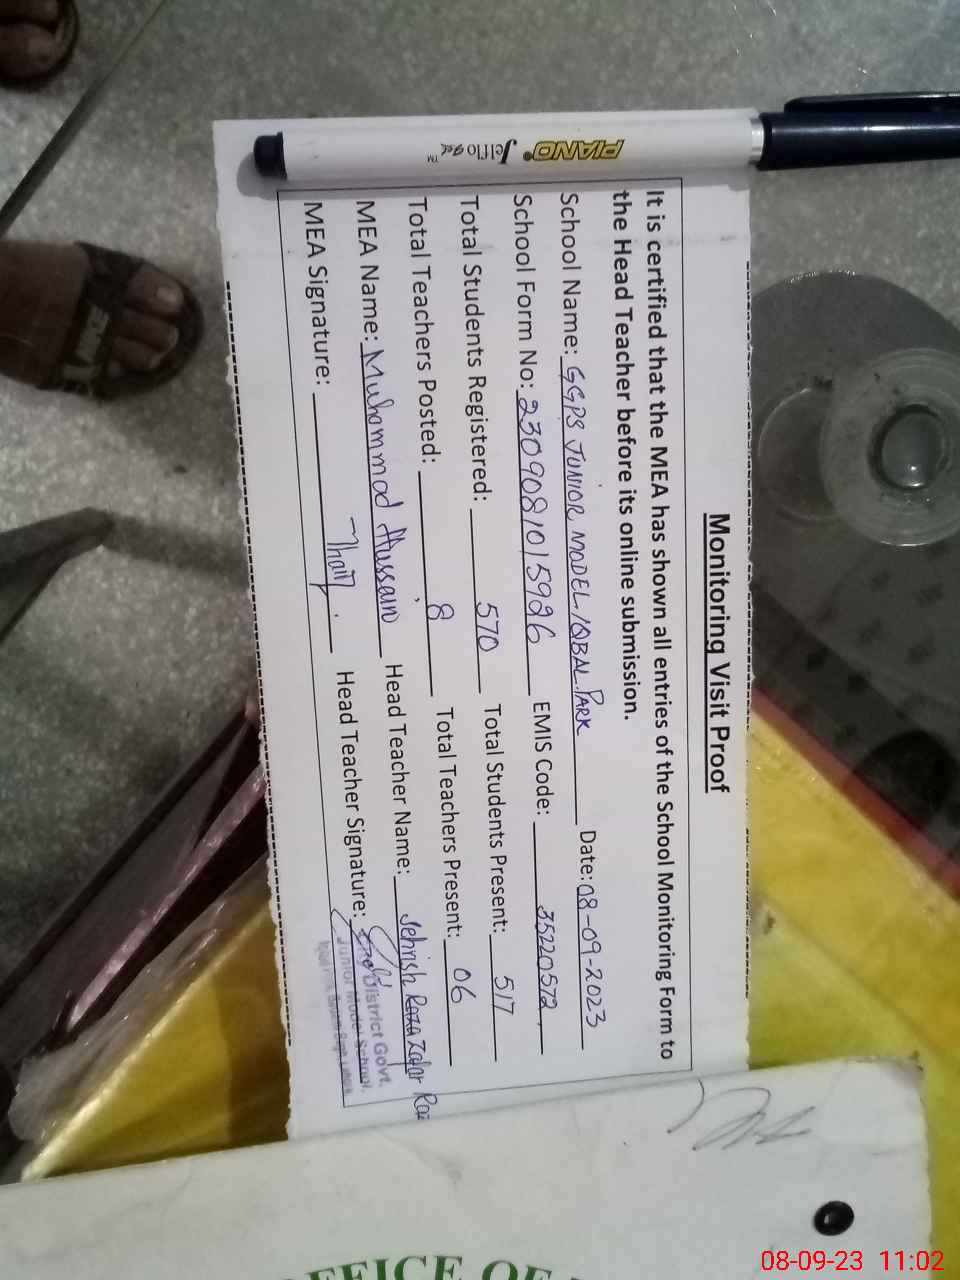 PIANO® Jelflo gel™
Monitoring Visit Proof
It is certified that the MEA has shown all entries of the School Monitoring Form to
the Head Teacher before its online submission.
School Name: GGPS JUNIOR MODEL IQBAL PARK Date: 08-09-2023
School Form No: 2309081015926 EMIS Code: 35220572
Total Students Registered: 570 Total Students Present: 517
Total Teachers Posted: 8 Total Teachers Present: 06
MEA Name: Muhammad Hussain Head Teacher Name: Sehrish Raza Zafar
MEA Signature: Head Teacher Signature:
District Govt.
Junior Model School
OFFICE OF
08-09-23 11:02